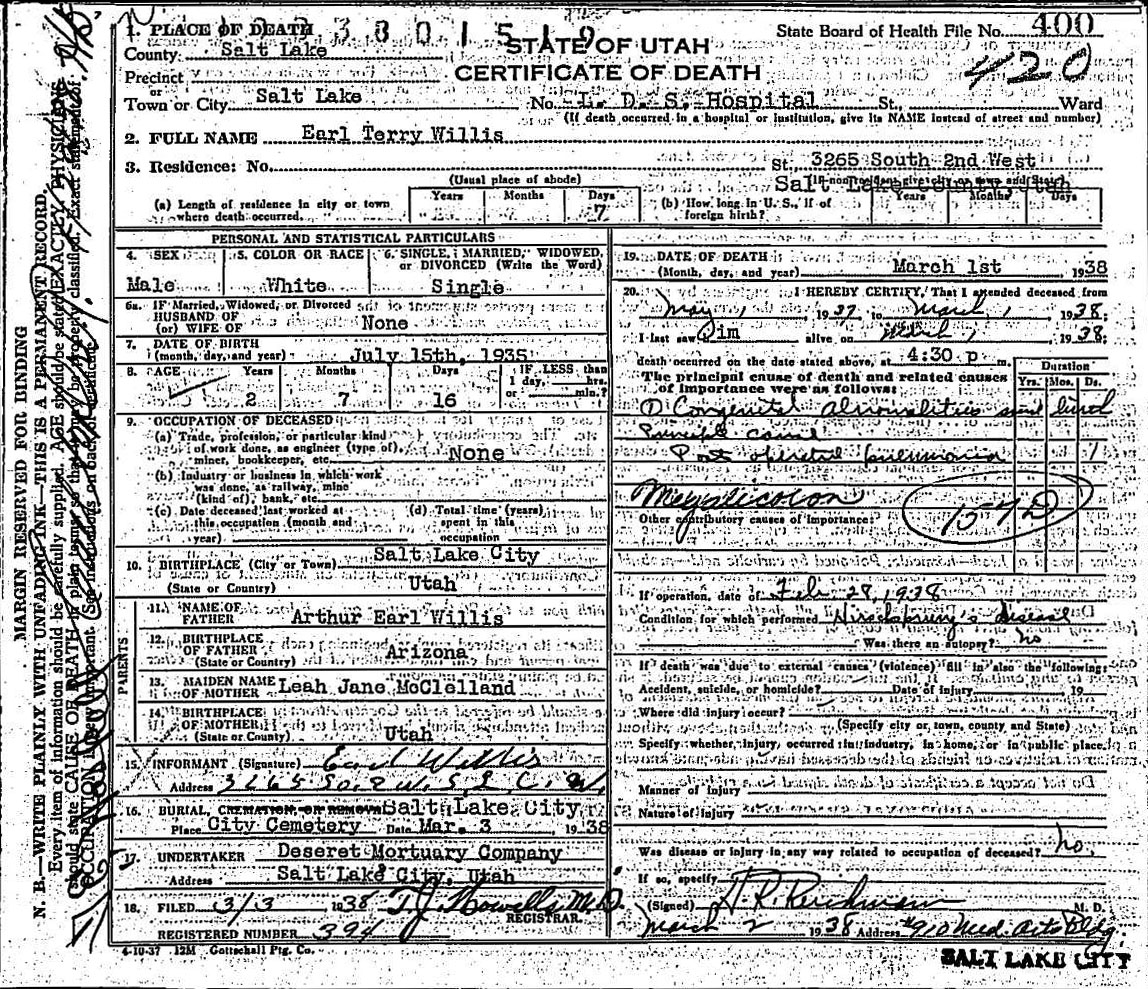 1. PLACE OF DEATH
3801519
STATE OF UTAH
State Board of Health File No. 400
County Salt Lake
CERTIFICATE OF DEATH
420
Precinct
or
Town or City Salt Lake No. L. D. S. Hospital St., Ward
(If death occurred in a hospital or institution, give its NAME instead of street and number)
2. FULL NAME Earl Terry Willis
3. Residence: No. St. 3265 South 2nd West
(Usual place of abode) Salt Lake County, Utah
(If nonresident give city or town and State)
(a) Length of residence in city or town where death occurred. Years Months Days 7
(b) How long in U. S., if of foreign birth? Years Months Days
PERSONAL AND STATISTICAL PARTICULARS
4. SEX 5. COLOR OR RACE 6. SINGLE, MARRIED, WIDOWED, or DIVORCED (Write the Word)
Male White Single
6a. IF Married, Widowed, or Divorced
HUSBAND OF
(or) WIFE OF None
7. DATE OF BIRTH
(month, day, and year) July 15th, 1935
8. AGE Years Months Days IF LESS than
1 day, hrs.
or min.?
2 7 16
9. OCCUPATION OF DECEASED
(a) Trade, profession, or particular kind
of work done, as engineer (type of),
miner, bookkeeper, etc. None
(b) Industry or business in which work
was done, as railway, mine
(kind of), bank, etc.
(c) Date deceased last worked at
this occupation (month and
year)
(d) Total time (years)
spent in this
occupation
10. BIRTHPLACE (City or Town) Salt Lake City
(State or Country) Utah
PARENTS
11. NAME OF
FATHER Arthur Earl Willis
12. BIRTHPLACE
OF FATHER
(State or Country) Arizona
13. MAIDEN NAME
OF MOTHER Leah Jane McClelland
14. BIRTHPLACE
OF MOTHER
(State or County) Utah
15. INFORMANT (Signature) Earl Willis
Address 3265 So. 2 W. S. L. C.
16. BURIAL, CREMATION OR REMOVAL Salt Lake City
Place City Cemetery Date Mar. 3 1938
17. UNDERTAKER Deseret Mortuary Company
Address Salt Lake City, Utah
18. FILED 3/3 1938 T. J. Howells M.D.
REGISTRAR.
REGISTERED NUMBER 394
4-10-37 12M Gottschall Ptg. Co.
19. DATE OF DEATH
(Month, day, and year) March 1st 1938
20. I HEREBY CERTIFY, That I attended deceased from
May 1 1937 to March 1 1938;
I last saw him alive on March 1 1938;
death occurred on the date stated above, at 4:30 p m.
The principal cause of death and related causes
of importance were as follows:
Duration
Yrs. Mos. Ds.
Congenital abnormalities
Principle cause
Post operative pneumonia 1
Megalicolon
157D
Other contributory causes of importance:
If operation, date of Feb. 28, 1938
Condition for which performed Hirschsprung's disease
Was there an autopsy? no
If death was due to external causes (violence) fill in also the following:
Accident, suicide, or homicide? Date of injury 19
Where did injury occur?
(Specify city or town, county and State)
Specify whether injury occurred in industry, in home, or in public place.
Manner of injury
Nature of injury
Was disease or injury in any way related to occupation of deceased? no.
If so, specify
(Signed) M. D.
March 2 1938 Address #910 Med. Arts Bldg.
SALT LAKE CITY
MARGIN RESERVED FOR BINDING
N. B.—WRITE PLAINLY WITH UNFADING INK—THIS IS A PERMANENT RECORD.
Every item of information should be carefully supplied. AGE should be stated EXACTLY. PHYSICIANS
should state CAUSE OF DEATH in plain terms so that it may be properly classified. Exact statement of
OCCUPATION is very important. (See instructions on back of certificate.)